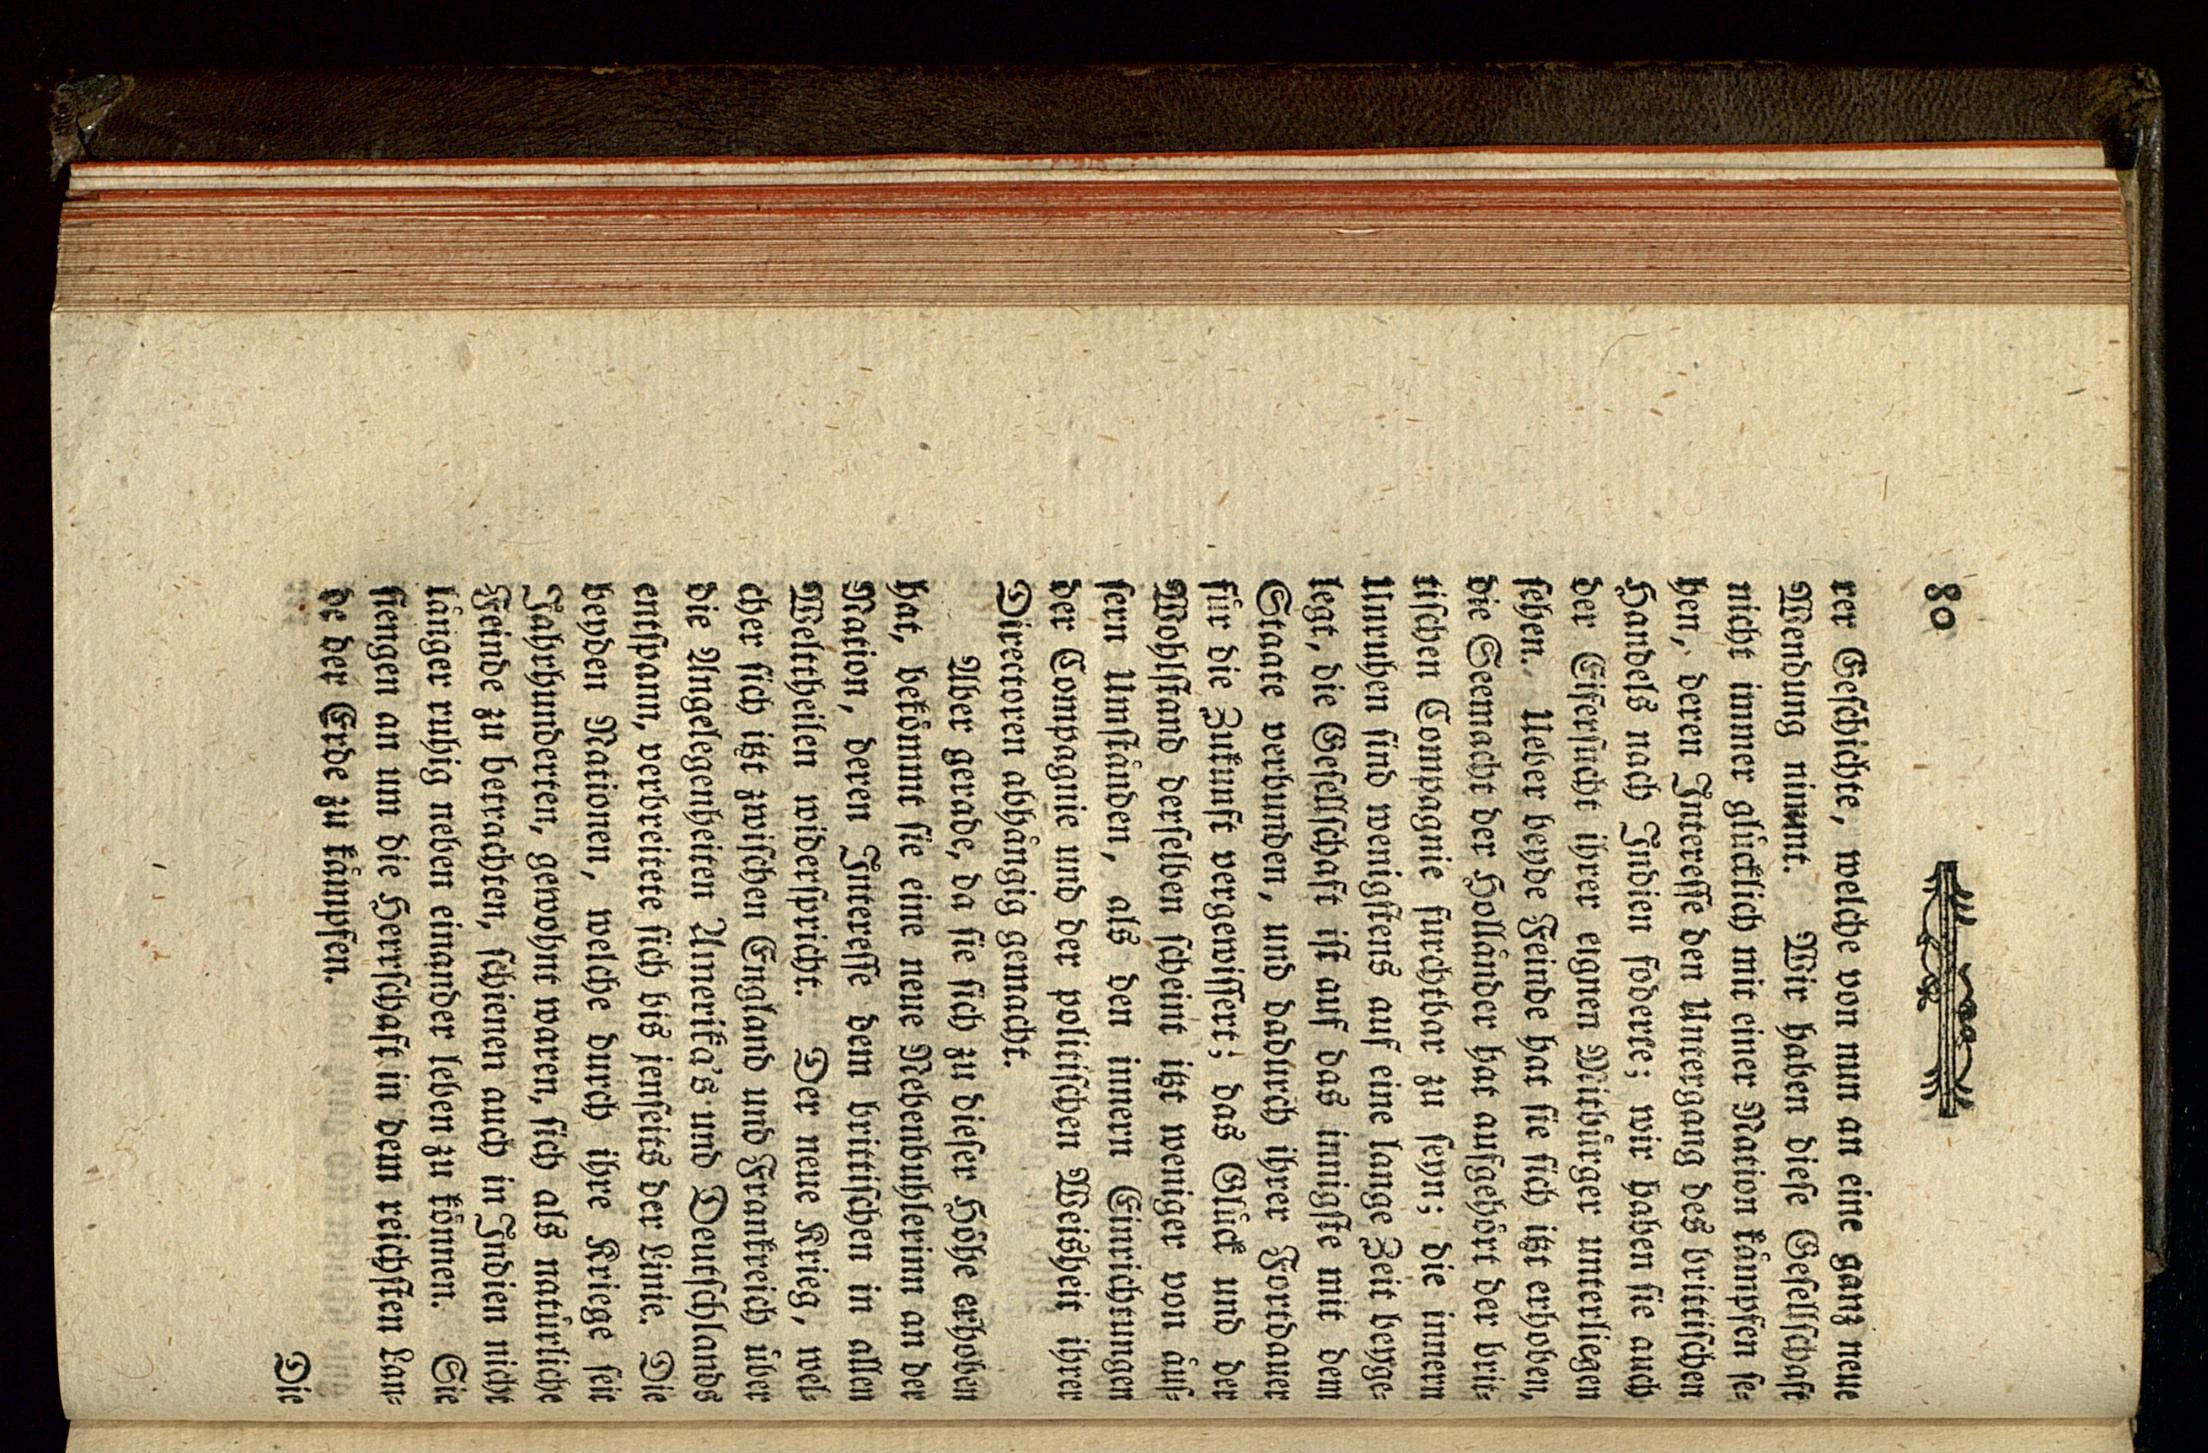 80
rer Geſchichte, welche von nun an eine ganz neue
Wendung nimmt. Wir haben dieſe Geſellſchaft
nicht immer glücklich mit einer Nation kämpfen ſe-
hen, deren Intereſſe den Untergang des brittiſchen
Handels nach Indien foderte; wir haben ſie auch
der Eiferſucht ihrer eignen Mitbürger unterliegen
ſehen. Ueber beyde Feinde hat ſie ſich itzt erhoben,
die Seemacht der Holländer hat aufgehört der brit-
tiſchen Compagnie furchtbar zu ſeyn; die innern
Unruhen ſind wenigſtens auf eine lange Zeit beyge-
legt, die Geſellſchaft iſt auf das innigſte mit dem
Staate verbunden, und dadurch ihrer Fortdauer
für die Zukunft vergewiſſert; das Glück und der
Wohlſtand derſelben ſcheint itzt weniger von äuſ-
ſern Umſtänden, als den innern Einrichtungen
der Compagnie und der politiſchen Weisheit ihrer
Directoren abhängig gemacht.
Aber gerade, da ſie ſich zu dieſer Höhe erhoben
hat, bekömmt ſie eine neue Nebenbuhlerinn an der
Nation, deren Intereſſe dem brittiſchen in allen
Welttheilen widerſpricht. Der neue Krieg, wel-
cher ſich itzt zwiſchen England und Frankreich über
die Angelegenheiten Amerika's und Deutſchlands
entſpann, verbreitete ſich bis jenſeits der Linie. Die
beyden Nationen, welche durch ihre Kriege ſeit
Jahrhunderten, gewohnt waren, ſich als natürliche
Feinde zu betrachten, ſchienen auch in Indien nicht
länger ruhig neben einander leben zu können. Sie
fiengen an um die Herrſchaft in dem reichſten Lan-
de der Erde zu kämpfen.
Die